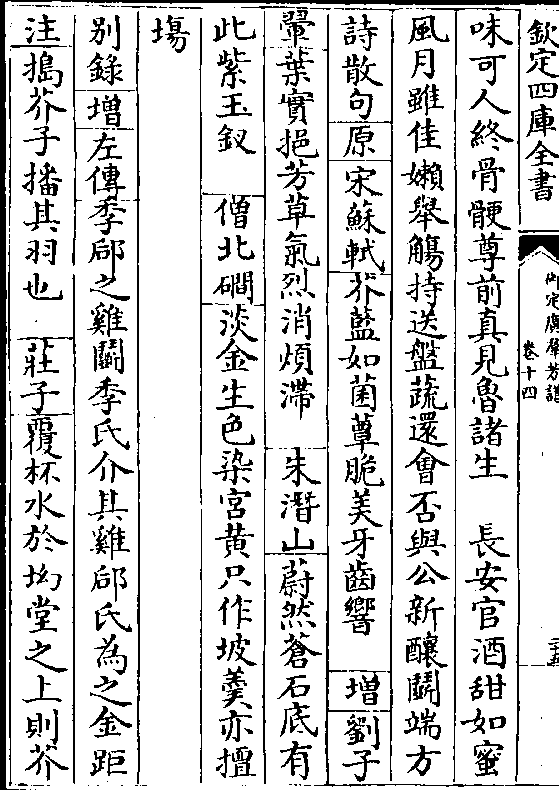 欽定四庫全書
御定廣羣芳譜
卷十四
二十五
味可人終骨骾尊前真見魯諸生　長安官酒甜如蜜
風月雖佳嬾舉觴持送盤蔬還會否與公新釀鬭端方
詩散句原宋蘇軾芥藍如菌蕈脆美牙齒響　增劉子
翬葉實挹芳草氣烈消煩滯　朱潛山蔚然蒼石底有
此紫玉釵　僧北磵淡金生色染宮黄只作坡羮亦擅
塲
别錄增左傳季郈之雞鬭季氏介其雞郈氏為之金距
注擣芥子播其羽也　莊子覆杯水於坳堂之上則芥